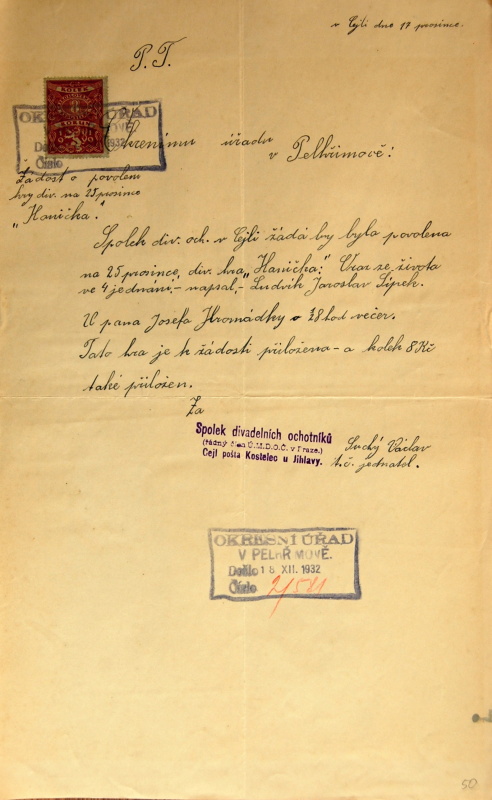 v Cejli dne 17 prosince.
P. T.
KOLEK
OKRESNÍ ÚŘAD
1932
Číslo
úřadu
v Pelhřimově!
Žádost o povolení
hry div. na 25 prosince
„Hanička".
Spolek div. och. v Cejli žádá by byla povolena
na 25 prosince, div. hra „Hanička." Obraz ze života
ve 4 jednání,- napsal,- Ludvík Jaroslav Šípek.
U pana Josefa Hromádky o ½8 hod večer.
Tato hra je k žádosti přiložena - a kolek 8 Kč
také přiložen.
Za
Spolek divadelních ochotníků
(řádný člen Ú.M.D.O.Č. v Praze.)
Cejl pošta Kostelec u Jihlavy.
Suchý Václav
t. č. jednatel.
OKRESNÍ ÚŘAD
V PELHŘIMOVĚ.
Došlo 18 XII. 1932
Číslo
50